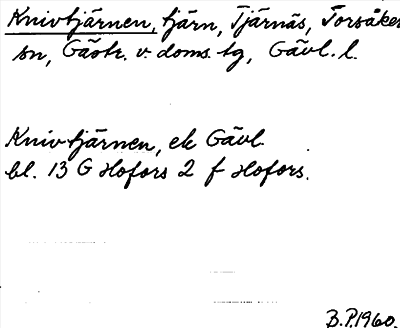 Knivtjärnen, tjärn, Tjärnäs, Torsåkers
sn, Gästr. v. doms. tg, Gävl. l.
Knivtjärnen, ek Gävl.
bl. 13 G Hofors 2 f Hofors.
B.P. 1960.